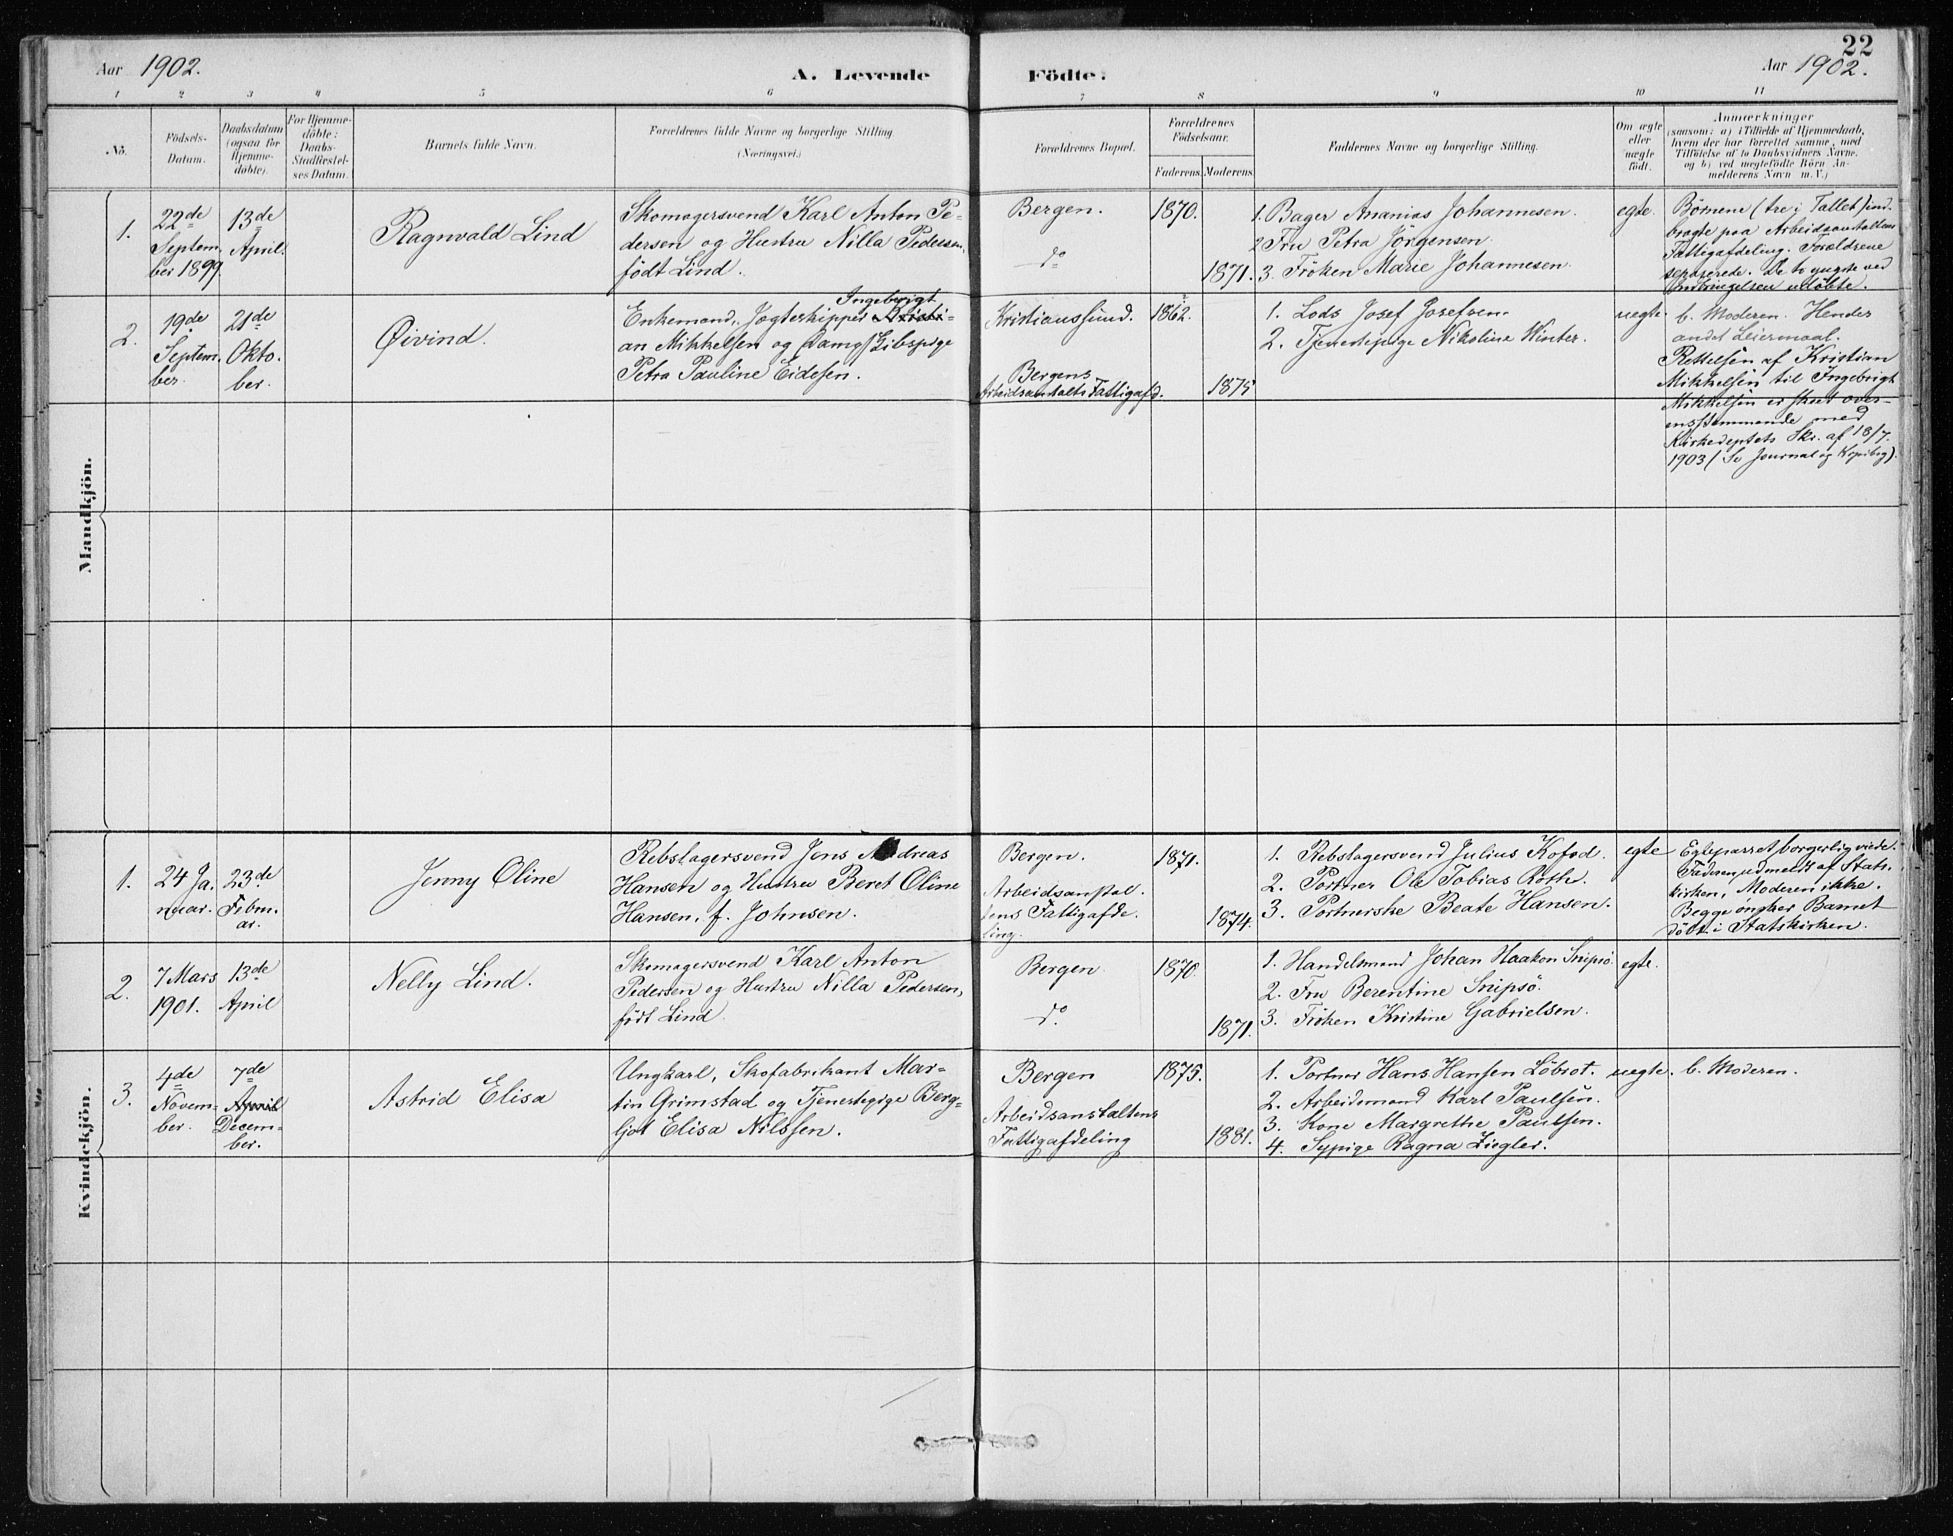 22
Aar 1902.
A. Levende Födte.
Aar 1902.
1 2 3 4 5 6 7 8 9 10 11
No.
Födsels-
Datum.
Daabsdatum
(ogsaa for
Hjemme-
döbte).
For Hjemme-
döbte:
Daabs-
Stadfæstel-
ses Datum.
Barnets fulde Navn.
Forældrenes fulde Navne og borgerlige Stilling
(Næringsvei.)
Forældrenes Bopæl.
Forældrenes
Födselsaar.
Faderens. Moderens.
Faddernes Navne og borgerlige Stilling.
Om ægte
eller
uægte
födt.
Anmærkninger
(saasom: a) i Tilfælde af Hjemmedaab,
hvem der har forrettet samme, med
Tilföielse af to Daabsvidners Navne,
og b) ved uægtefödte Börn An-
melderens Navn m. V.)
Mandkjön.
1.
22de
Septem-
ber 1899.
13de
April.
Ragnvald Lind
Skomagersvend Karl Anton Pe-
dersen og Hustru Nilla Pedersen,
födt Lind.
Bergen.
do
1870.
1871.
1. Bager Ananias Johannesen.
2 Fru Petra Jörgensen.
3. Fröken Marie Johannesen.
egte.
Børnene (tre i Tallet) ind-
bragte paa Arbeidsanstaltens
Fattigafdeling. Forældrene
separerede. De to yngste ved
Indbringelsen udöbte.
2.
19de
Septem-
ber.
21de
Okto-
ber.
Øivind.
Ingebrigt
Enkemand, Jægteskipper Kristi-
an Mikkelsen og Damp
Petra Pauline Eidesen.
Kristianssund.
Bergens
Arbeidsanstalts Fattigafd.
1862.
1875
1. Lods Josef Josefsen.
2. Tjenestepige Nikoline Winter.
uegte.
b. Moderen. Hendes
andet Leiermaal.
Rettelsen af Kristian
Mikkelsen til Ingebrigt
Mikkelsen er skeet over-
ensstemmende med
Kirkedeptets Skr. af 18/7.
1903 (Se Journal og Kopibog).
Kvindekjön.
1.
24 Ja-
nuar.
23de
Febru-
ar.
Jenny Oline
Rebslagersvend Jens Andreas
Hansen og Hustru Beret Oline
Hansen, f. Johnsen.
Bergen.
Arbeidsanstal-
tens Fattigafde-
ling.
1871.
1874.
1. Rebslagersvend Julius Kofod.
2. Portner Ole Tobias Roth.
3. Portnerske Beate Hansen.
egte
Egteparret borgerlig viede.
Faderen udmeldt af Stats-
kirken, Moderen ikke.
Begge önsker Barnet
döbt i Statskirken.
2.
7 Mars
1901.
13de
April
Nelly Lind.
Skomagersvend Karl Anton
Pedersen og Hustru Nilla Pedersen,
födt Lind
Bergen
do
1870.
1871.
1. Handelsmand Johan Haakon Snipsö.
2. Fru Berentine Snipsö.
3. Fröken Kristine Gabrielsen.
egte.
3.
4de
Novem-
ber.
7de
April
Decem-
ber.
Astrid Elisa
Ungkarl, Skofabrikant Mar-
tin Grimstad og Tjenestepige Berg-
ljot Elisa Nilssen.
Bergen
Arbeidsanstaltens
Fattigafdeling
1875.
1881.
1. Portner Hans Hansen Löbrot.
2. Arbeidsmand Karl Paulsen.
3. Kone Margrethe Paulsen.
4. Sypige Ragna Ziegler.
uegte.
b. Moderen.